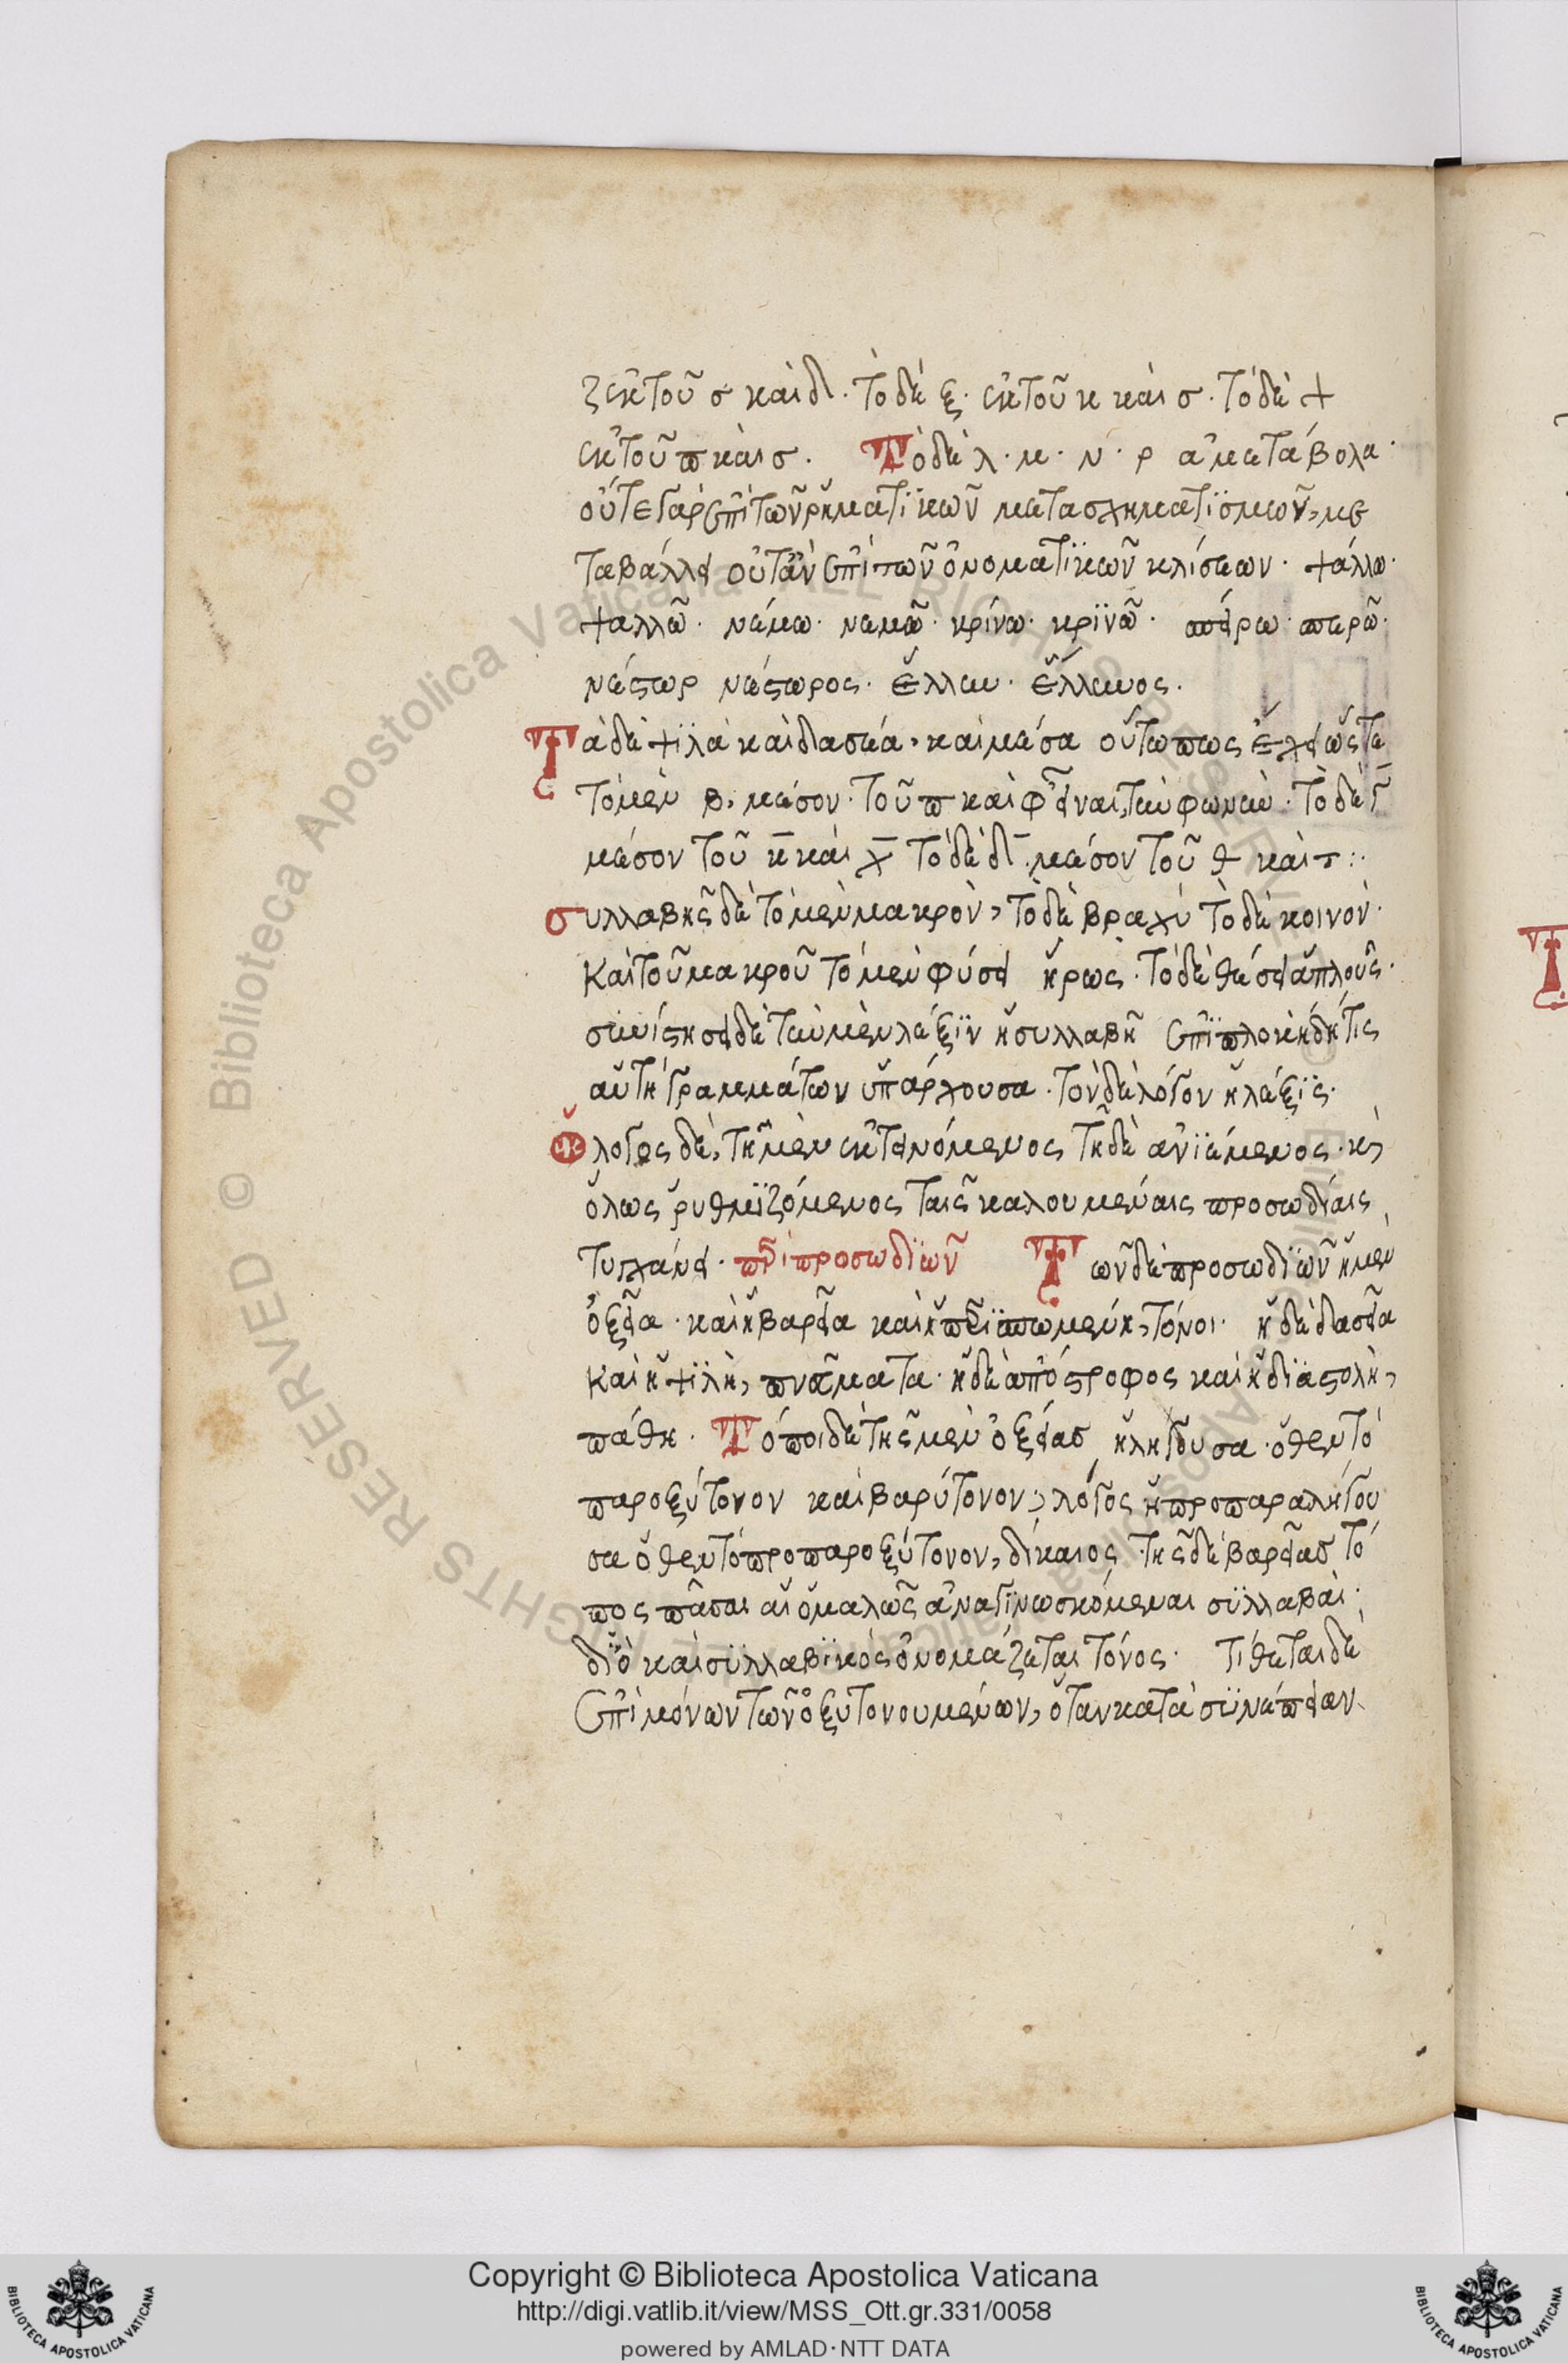 ζ ἐκ τοῦ σ καὶ δ. τὸ δὲ ξ. ἐκ τοῦ κ καὶ σ. τὸ δὲ ψ
ἐκ τοῦ π καὶ σ. Τὸ δὲ λ. μ. ν. ρ ἀμετάβολα.
οὔτε γὰρ ἐπὶ τῶν ῥηματϊκῶν μετασχηματϊσμῶν, με
ταβάλλει οὔτ' ἂν ἐπὶ τῶν ὀνοματϊκῶν κλίσεων. ψάλλω.
ψαλλῶ. νέμω. νεμῶ. κρίνω. κρϊνῶ. σπείρω. σπερῶ.
νέστωρ νέστωρος. ἕλλην. ἕλληνος.
Τὰ δὲ ψϊλὰ καὶ δασέα, καὶ μέσα οὕτω πως ἔχει ὥστε
τὸ μὲν β, μέσον. τοῦ π καὶ φ εἶναι, τὴν φωνὴν. τὸ δὲ γ
μέσον τοῦ κ καὶ χ τὸ δὲ δ. μέσον τοῦ θ καὶ τ :.
συλλαβῆς δὲ τὸ μὲν μακρὸν, τὸ δὲ βραχὺ τὸ δὲ κοινόν.
Καὶ τοῦ μακροῦ τὸ μὲν φύσει ἥρως. τὸ δὲ θέσει ἁπλοῦς.
συνίστησι δὲ τὴν μὲν λέξϊν ἡ συλλαβὴ ἐπϊπλοκὴ δή τις
αὕτη γραμμάτων ὑπάρχουσα. τὸν δὲ λόγον ἡ λέξϊς.
Ὁ λόγος δὲ, πῆ μὲν ἐκτεινόμενος πῆ δὲ ἀνϊέμενος. κ
ὅλως ῥυθμϊζόμενος ταῖς καλουμέναις προσωδίαις
τυγχάνει. περὶ προσωδϊῶν Τῶν δὲ προσωδϊῶν ἡ μὲν
ὀξεῖα. καὶ ἡ βαρεῖα καὶ ἡ περϊσπωμένη, τόνοι. ἡ δὲ δασεῖα
Καὶ ἡ ψϊλὴ, πνεύματα. ἡ δὲ ἀπόστροφος καὶ ἡ δϊαστολὴ,
πάθη. Τόποι δὲ τῆς μὲν ὀξείας ἡ λήγουσα. ὅθεν τὸ
παροξύτονον καὶ βαρύτονον, λόγος ἡ προπαραλήγου
σα ὅθεν τὸ προπαροξύτονον, δίκαιος. τῆς δὲ βαρείας τό
πος πᾶσαι αἱ ὁμαλῶς ἀναγϊνωσκόμεναι συλλαβαὶ.
δϊὸ καὶ συλλαβϊκὸς ὀνομάζεται τόνος. τίθεται δὲ
ἐπὶ μόνων τῶν ὀξυτονουμένων, ὅταν κατὰ συνέπειαν
Copyright © Biblioteca Apostolica Vaticana
http://digi.vatlib.it/view/MSS_Ott.gr.331/0058
powered by AMLAD·NTT DATA